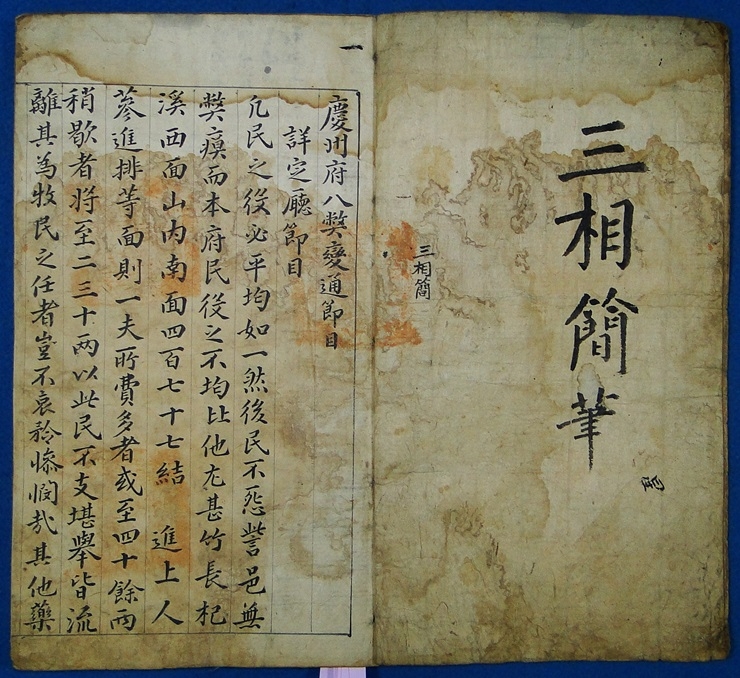 三相簡筆
三相簡
一
慶州府八獘變通節目
詳定廳節目
凡民之役必平均如一然後民不怨讟邑無
獘瘼而本府民役之不均比他尤甚竹長杞
溪西面山內南面四百七十七結 進上人
蔘進排等面則一夫所費多者或至四十餘兩
稍歇者將至二三十兩以此民不支堪擧皆流
離其為牧民之任者豈不哀矜慘憫哉其他藥